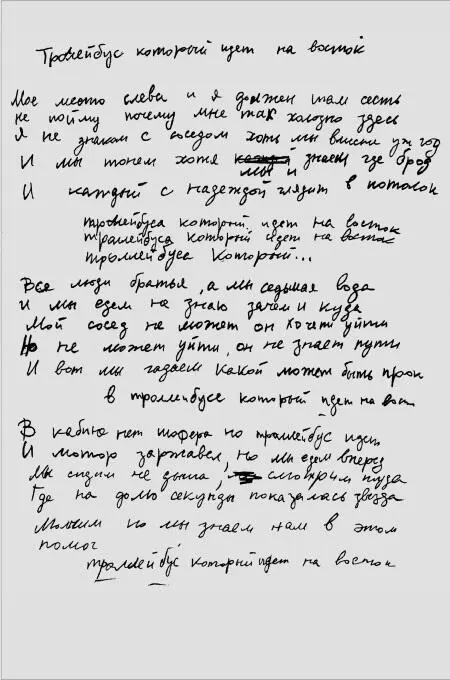 Тролейбус который идет на восток
Мое место слева и я должен там сесть
не пойму почему мне так холодно здесь
Я не знаком с соседом хоть мы вместе уж год
И мы тонем хотя знаем где брод
мы и
И каждый с надеждой глядит в потолок
тролейбуса который идет на восток
тралейбуса который идет на восток
троллейбуса который...
Все люди братья, а мы седьмая вода
И мы едем не знаю зачем и куда
Мой сосед не может он хочет уйти
Но не может уйти, он не знает пути
И вот мы гадаем какой может быть прок
в троллейбусе который идет на вост
В кабине нет шофера но троллейбус идет
И мотор заржавел, но мы едем вперед
Мы сидим не дыша, смотрим туда
Где на долю секунды показалась звезда
Молчим но мы знаем нам в этом
помог
траллейбус который идет на восток